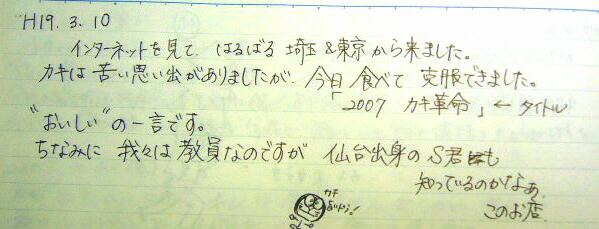 H19. 3. 10
インターネットを見て、はるばる 埼玉&東京から来ました。
カキは苦い思い出がありましたが、今日食べて 克服できました。
「2007 カキ革命」← タイトル
"おいしい"の一言です。
ちなみに 我々は教員なのですが 仙台出身のS君も
知っているのかなぁ
このお店
カキ